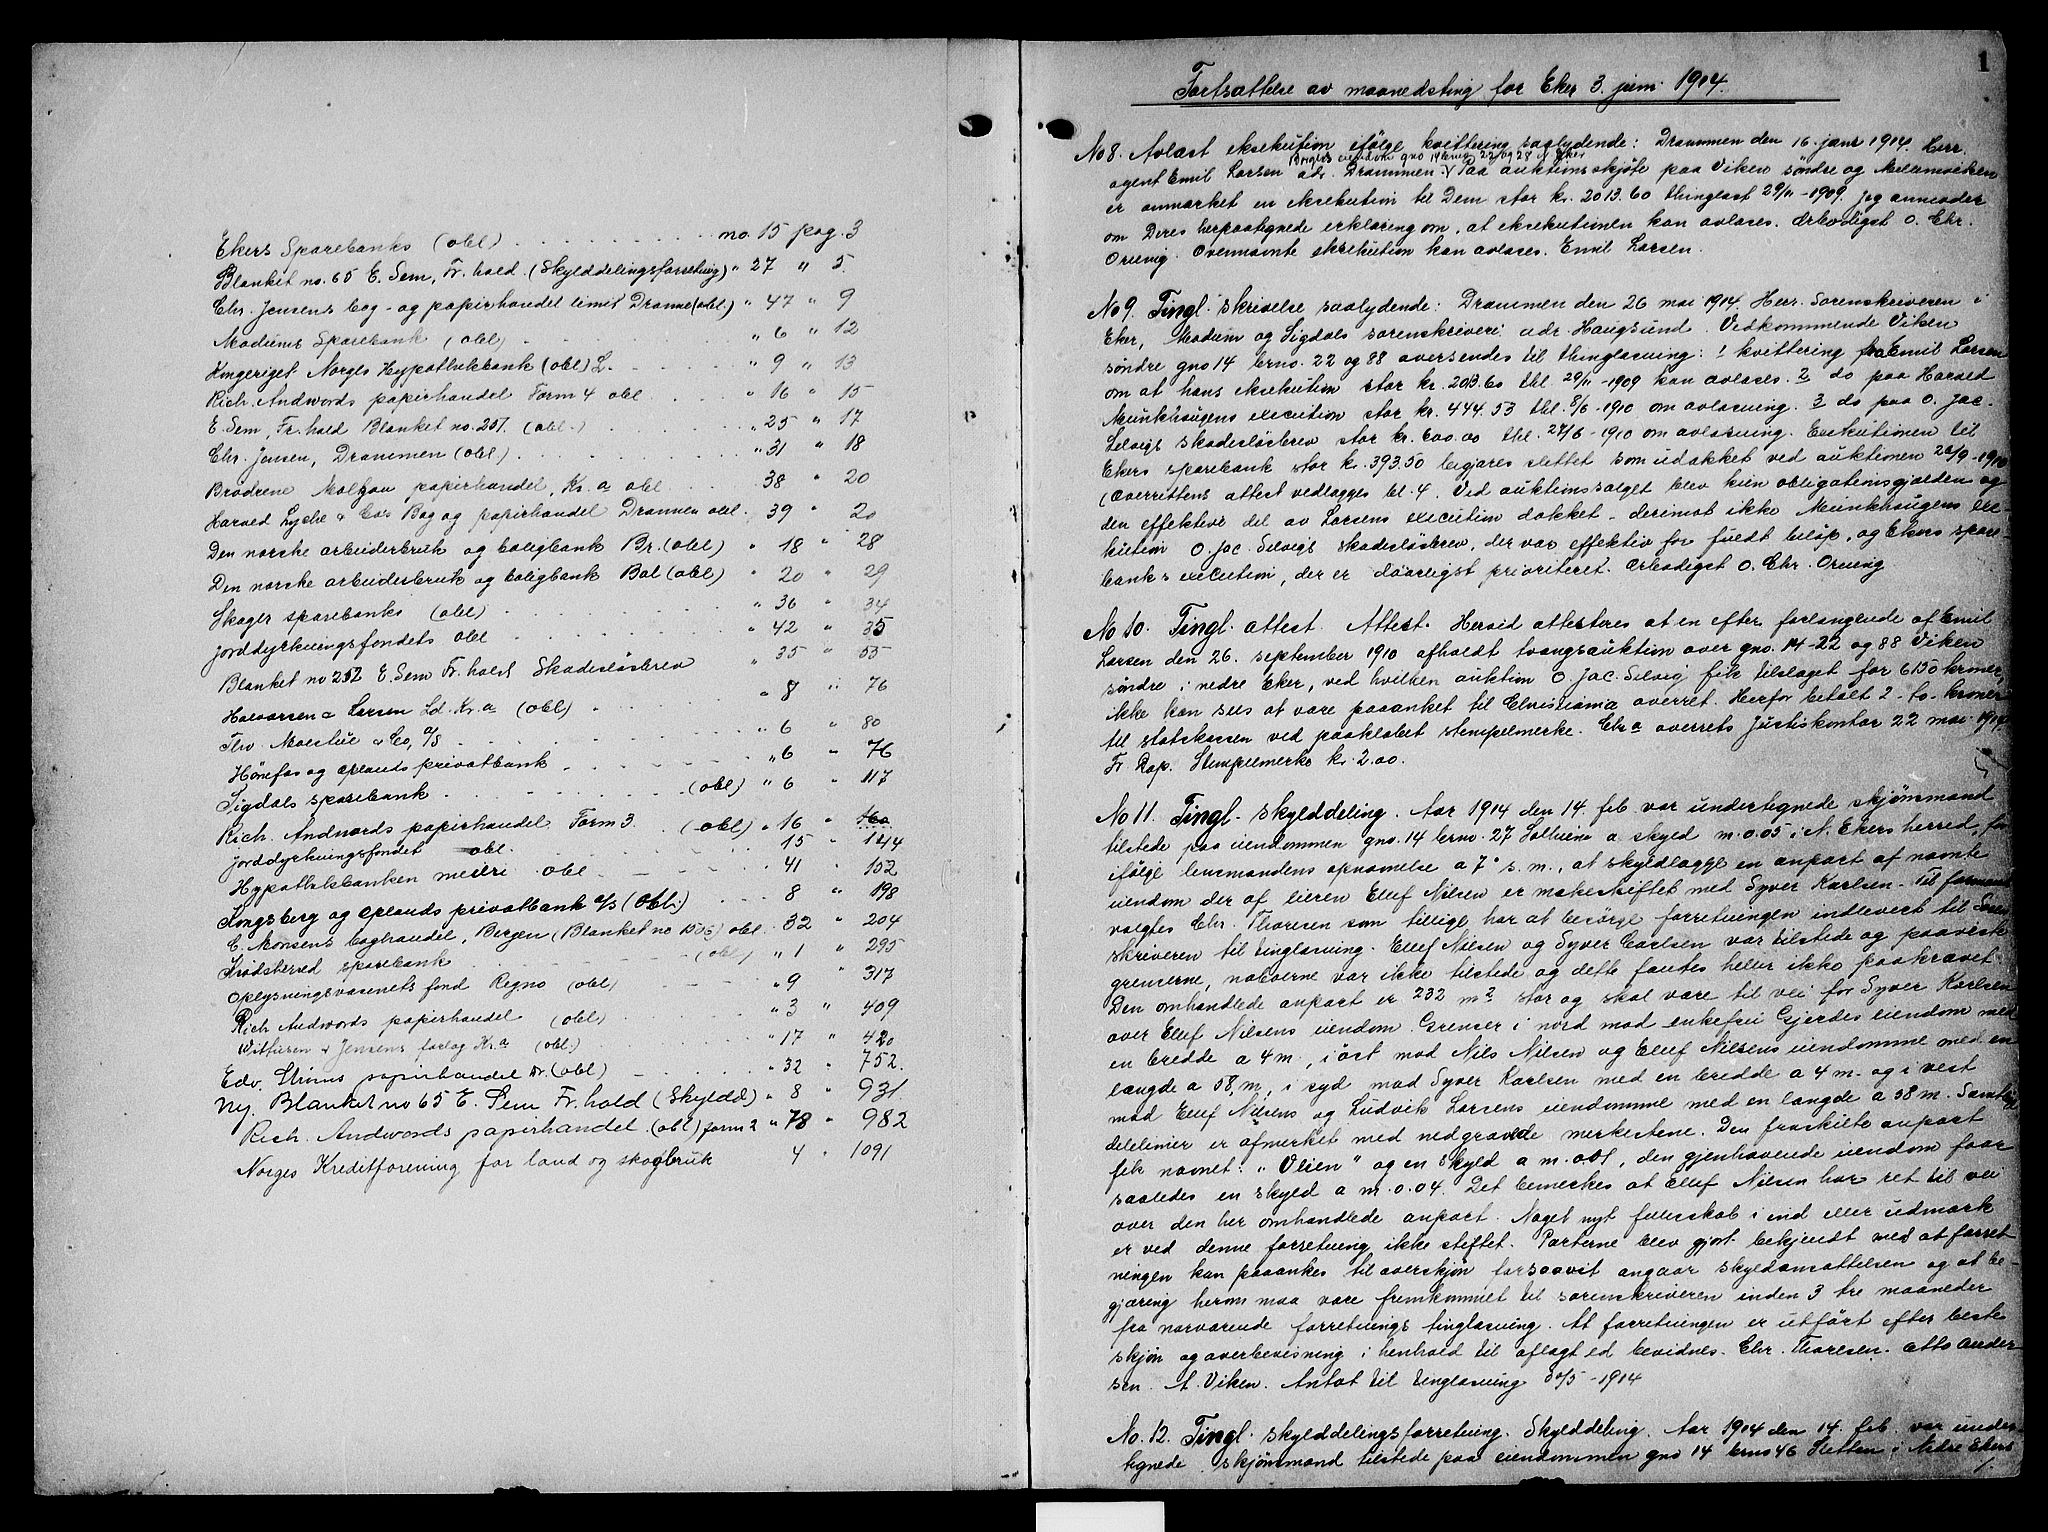 Ekers Sparebanks (obl) . . . . . . . . . . no. 15 pag. 3
Blanket no. 65 E. Sem, Fr.hald. (Skylddelingsforretning) " 27 " 5.
Chr. Jensens bog- og papirhandel limit Dramn (obl.) " 47 " 9
Modums Sparebank (obl) . . . . . " 6 " 12
Kongeriget Norges Hypothekbank (obl) L. . . . . " 9 " 13
Rich. Andvords papirhandel Form 4 obl . . . . " 16 " 15
E. Sem, Fr. hald Blanket no. 257. (obl.) . . . . . " 25 " 17
Chr. Jensen, Drammen (obl) . . . . . " 31 " 18
Brødrene Molzau papirhandel, Kr.a obl . . . 38 " 20
Harald Lyche & Co's Bog og papirhandel Drammen obl. " 39 " 20
Den norske arbeiderbruk og boligbank Br. (obl) " 18 " 28
Den norske arbeidersbruk og boligbank Bol (obl) " 20 " 29
Skoger sparebanks (obl) . . . . . " 36 " 34
Jorddyrkningsfondets obl . . . . . " 42 " 35
Blanket no 252 E. Sem Fr. hald Skadesløsbrev " 35 " 55
Halvorsen & Larsen Ld. Kr.a (obl) . . . . " 8 " 76
Thv. Moestue & Co, a/s . . . . . " 6 " 80
Hønefos og oplands privatbank . . . . . " 6 " 76
Sigdals sparebank . . . . . (obl) " 6 " 117
Rich. Andvords papirhandel Form 3. (obl) " 16 " 160
Jorddyrkningsfondet obl. . . . . 15 " 144
Hypothekbanken meieri obl . . . . 41 " 152
Kongsberg og oplands privatbank a/s (obl.) . . . 8 " 198
C. Monsens boghandel, Bergen (Blanket no 1506) obl. 32 " 204
Krødsherred sparebank . . . . . (obl) " 1 " 295
Oplysningsvæsenets fond Regno (obl) . . . " 9 " 317
Rich Andvords papirhandel (obl) . . . . " 3 " 409
Withusen & Jensens forlag Kr.a (obl.) . . . " 17 " 420
Edv. Strøms papirhandel Dr. (obl) . . . . " 32 " 752.
Ny. Blanket no 65 E. Sem Fr. hald (Skyldd) " 8 " 931.
Rich. Andvords papirhandel. (obl) form 2 " 78 " 982
Norges Kreditforening for land og skogbruk 4 " 1091
1
Fortsættelse av maanedsting for Eker 3. juni 1914.
No 8. Avlæst eksekution ifølge kvittering saalydende: Drammen den 16. janr 1914. Herr
Borgers eiendom gno 14 brno 22 og 28 N. Eker
agent Emil Larsen adr. Drammen. Paa auktionsskjøte paa Viken søndre og Mellemviken
er anmerket en eksekution til Dem stor kr. 2013.60 thinglæst 29/11-1909. Jeg anmoder
om Deres herpaategnede erklæring om, at eksekutionen kan avlæses. Ærbødigst O. Chr.
Orning. Ovennævnte eksekution kan avlæses. Emil Larsen.
No 9. Tingl. skrivelse saalydende: Drammen den 26 mai 1914. Herr Sorenskriveren i
Eker, Modum og Sigdals sorenskriveri adr. Haugsund. Vedkommende Viken
søndre gno 14 brno. 22 og 88 oversendes til thinglæsning: 1 kvittering fra Emil Larsen
om at hans eksekution stor kr. 2013.60 thl. 29/11-1909 kan avlæses. 2 do paa Harald
Munkhaugens execution stor kr. 444.53 thl. 8/6-1910 om avlæsning. 3 do paa O. Jac.
Selvigs skadesløsbrev stor kr. 600.00 thl. 27/6-1910 om avlæsning. Exekutionen til
Ekers sparebank stor kr. 393.50 begjæres slettet som udækket ved auktionen 26/9-1910
(Overrettens attest vedlægges bl. 4. Ved auktionssalget blev kun obligationsgjælden og
den effektive del av Larsens execution dækket - derimot ikke Munkhaugens exe-
kution O. Jac. Selvigs Skadesløsbrev, der var effektiv for fuldt beløp, og Ekers spare-
banks execution, der er daarligst prioriteret. Ærbødigst O. Chr. Orning
No 10. Tingl. attest. Attest. Herved attesteres at en efter forlangende af Emil
Larsen den 26. september 1910 afholdt tvangsauktion over gno. 14-22 og 88 Viken
søndre i nedre Eker, ved hvilken auktion O. Jac. Selvig fik tilslaget for 6150 kroner,
ikke kan sees at være paaanket til Christiania overret. Herfor betalt 2 - to - kroner
til statskassen ved paaklæbet stempelmerke. Chr.a overrets Justiskontor 22 mai 1914.
Fr. Rap. Stempelmerke kr. 2.00.
No 11. Tingl. skylddeling. Aar 1914 den 14. feb. var undertegnede skjønsmænd
tilstede paa eiendommen gno. 14 brno. 27 Solhvim a skyld m. 0.05 i N. Ekers herred, for
ifølge lensmandens opnævnelse a 7' s. m., at skyldlægge en anpart af nævnte
eiendom der af eieren Elluf Nilsen er makeskiftet med Syver Karlsen. Til formand
valgtes Chr. Thoresen som tillige har at besørge forretningen indlevert til Soren-
skriveren til tinglæsning. Elluf Nilsen og Syver Carlsen var tilstede og paaviste
grenserne, naboerne var ikke tilstede og dette fantes heller ikke paakrævet.
Den omhandlede anpart er 232 m² stor og skal være til vei for Syver Karlsen
over Elluf Nilsens eiendom. Grenser i nord mod enkefru Gjerdes eiendom med
en bredde a 4 m., i øst mod Nils Nilsen og Elluf Nilsens eiendomme med en
længde a 58, m, i syd mod Syver Karlsen med en bredde a 4 m. og i vest
mod Elluf Nilsens og Ludvik Larsens eiendomme med en længde a 58 m. Samtlige
delelinier er afmerket med nedgravede merkestene. Den fraskilte anpart
fik navnet: "Veien" og en skyld a m. 0.01, den gjenhavende eiendom faar
saaledes en skyld a m. 0.04. Det bemerkes at Elluf Nilsen har ret til vei
over den her omhandlede anpart. Noget nyt fælleskab i ind eller udmark
er ved denne forretning ikke stiftet. Parterne blev gjort bekjendt med at forret-
ningen kan paaankes til overskjøn forsaavit angaar skyldansættelsen og at be-
gjæring herom maa være fremkommet til sorenskriveren inden 3 tre maaneder
fra nærværende forretnings tinglæsning. At forretningen er utført efter beste
skjøn og overbevisning i henhold til aflagt ed bevidnes. Chr. Thoresen. Otto Ander-
sen. A. Viken. Antat til tinglæsning 30/5-1914
No. 12. Tingl. skylddelingsforretning. Skylddeling. Aar 1914 den 14. feb. var under-
tegnede skjønsmænd tilstede paa eiendommen gno 14 brno 46 Sletten i Nedre Ekers
1.